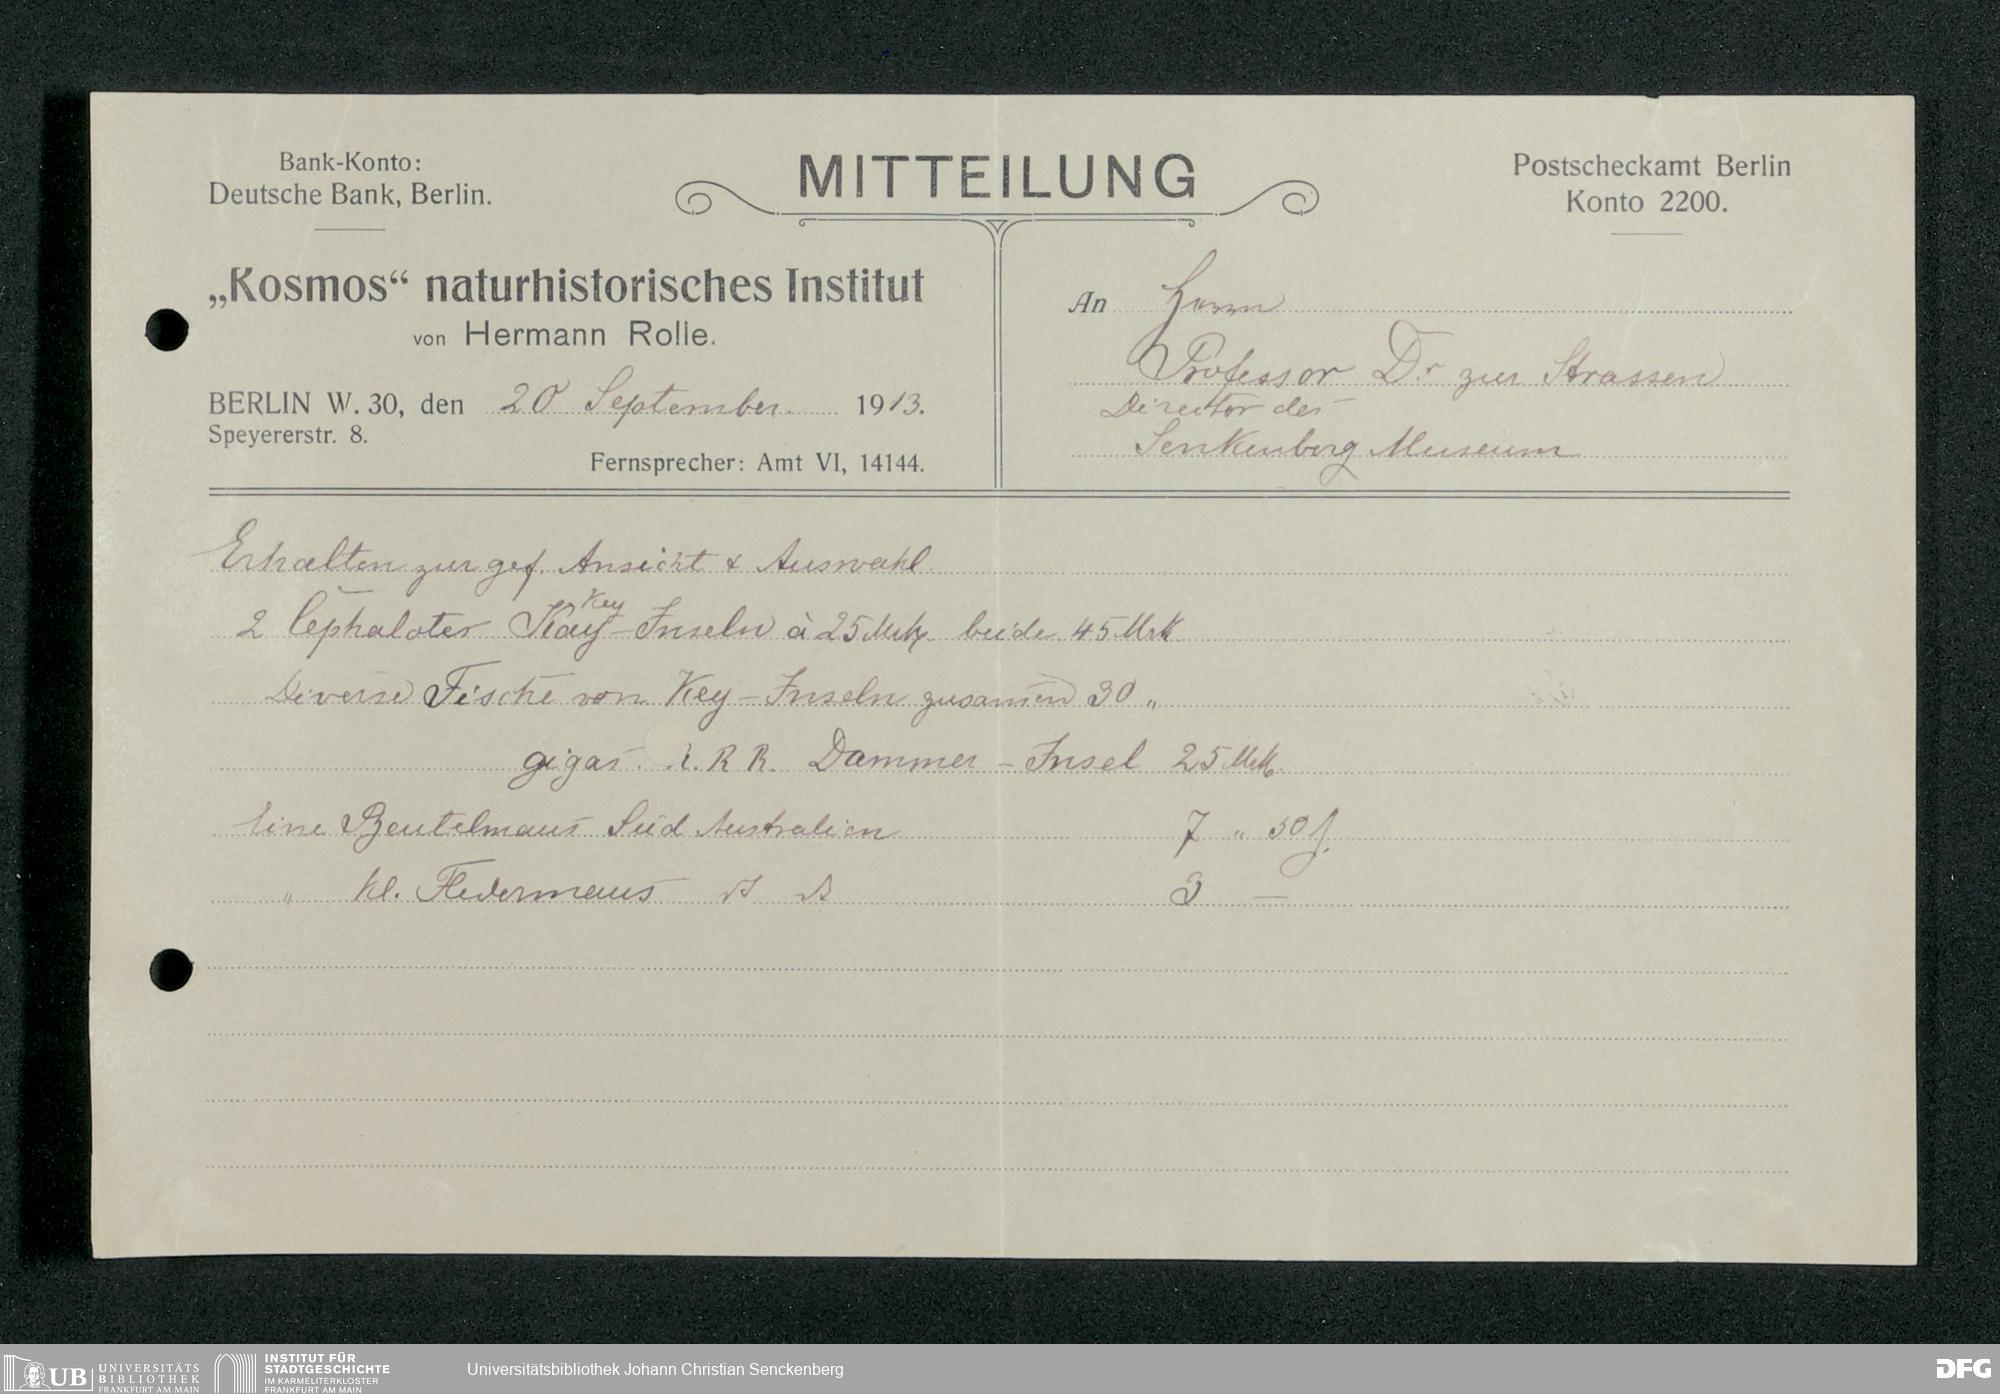 Bank-Konto:
Deutsche Bank, Berlin.
MITTEILUNG
Postscheckamt Berlin
Konto 2200.
„Kosmos“ naturhistorisches Institut
von Hermann Rolle.
BERLIN W. 30, den 20 September 1913.
Speyererstr. 8.
Fernsprecher: Amt VI, 14144.
An Herrn
Professor Dr zur Strassen
Director des
Senkenberg Museum
Erhalten zur gef. Ansicht & Auswahl
Key
2 Cephalotes Kay-Inseln à 25 Mk beide 45 Mrk
Diverse Fische von Key-Inseln zusamen 30 „
gigas. R. R. Dammer-Insel 25 Mk
Eine Beutelmaus Süd Australien 7 „ 50
„ kl. Fledermaus 3 —
UB UNIVERSITÄTS
BIBLIOTHEK
FRANKFURT AM MAIN
INSTITUT FÜR
STADTGESCHICHTE
IM KARMELITERKLOSTER
FRANKFURT AM MAIN
Universitätsbibliothek Johann Christian Senckenberg
DFG